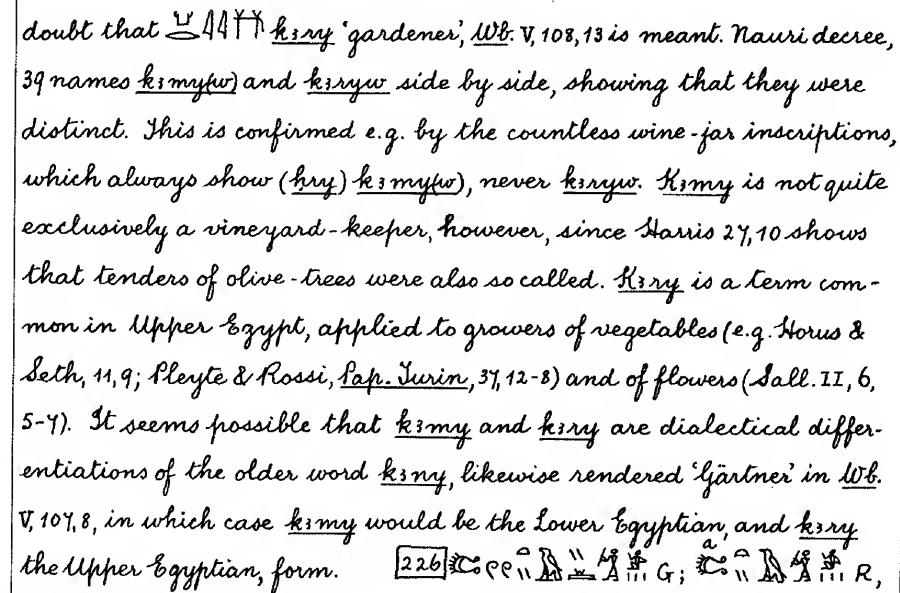 doubt that kꜣry 'gardener', Wb. V, 108, 13 is meant. Nauri decree,
39 names kꜣmy(w) and kꜣryw side by side, showing that they were
distinct. This is confirmed e.g. by the countless wine-jar inscriptions,
which always show (ḥry) kꜣmy(w), never kꜣryw. Kꜣmy is not quite
exclusively a vineyard-keeper, however, since Harris 27, 10 shows
that tenders of olive-trees were also so called. Kꜣry is a term com-
mon in Upper Egypt, applied to growers of vegetables (e.g. Horus &
Seth, 11, 9; Pleyte & Rossi, Pap. Turin, 37, 12-8) and of flowers (Sall. II, 6,
5-7). It seems possible that kꜣmy and kꜣry are dialectical differ-
entiations of the older word kꜣny, likewise rendered 'Gärtner' in Wb.
V, 107, 8, in which case kꜣmy would be the Lower Egyptian, and kꜣry
the Upper Egyptian, form. 226 G; a R,